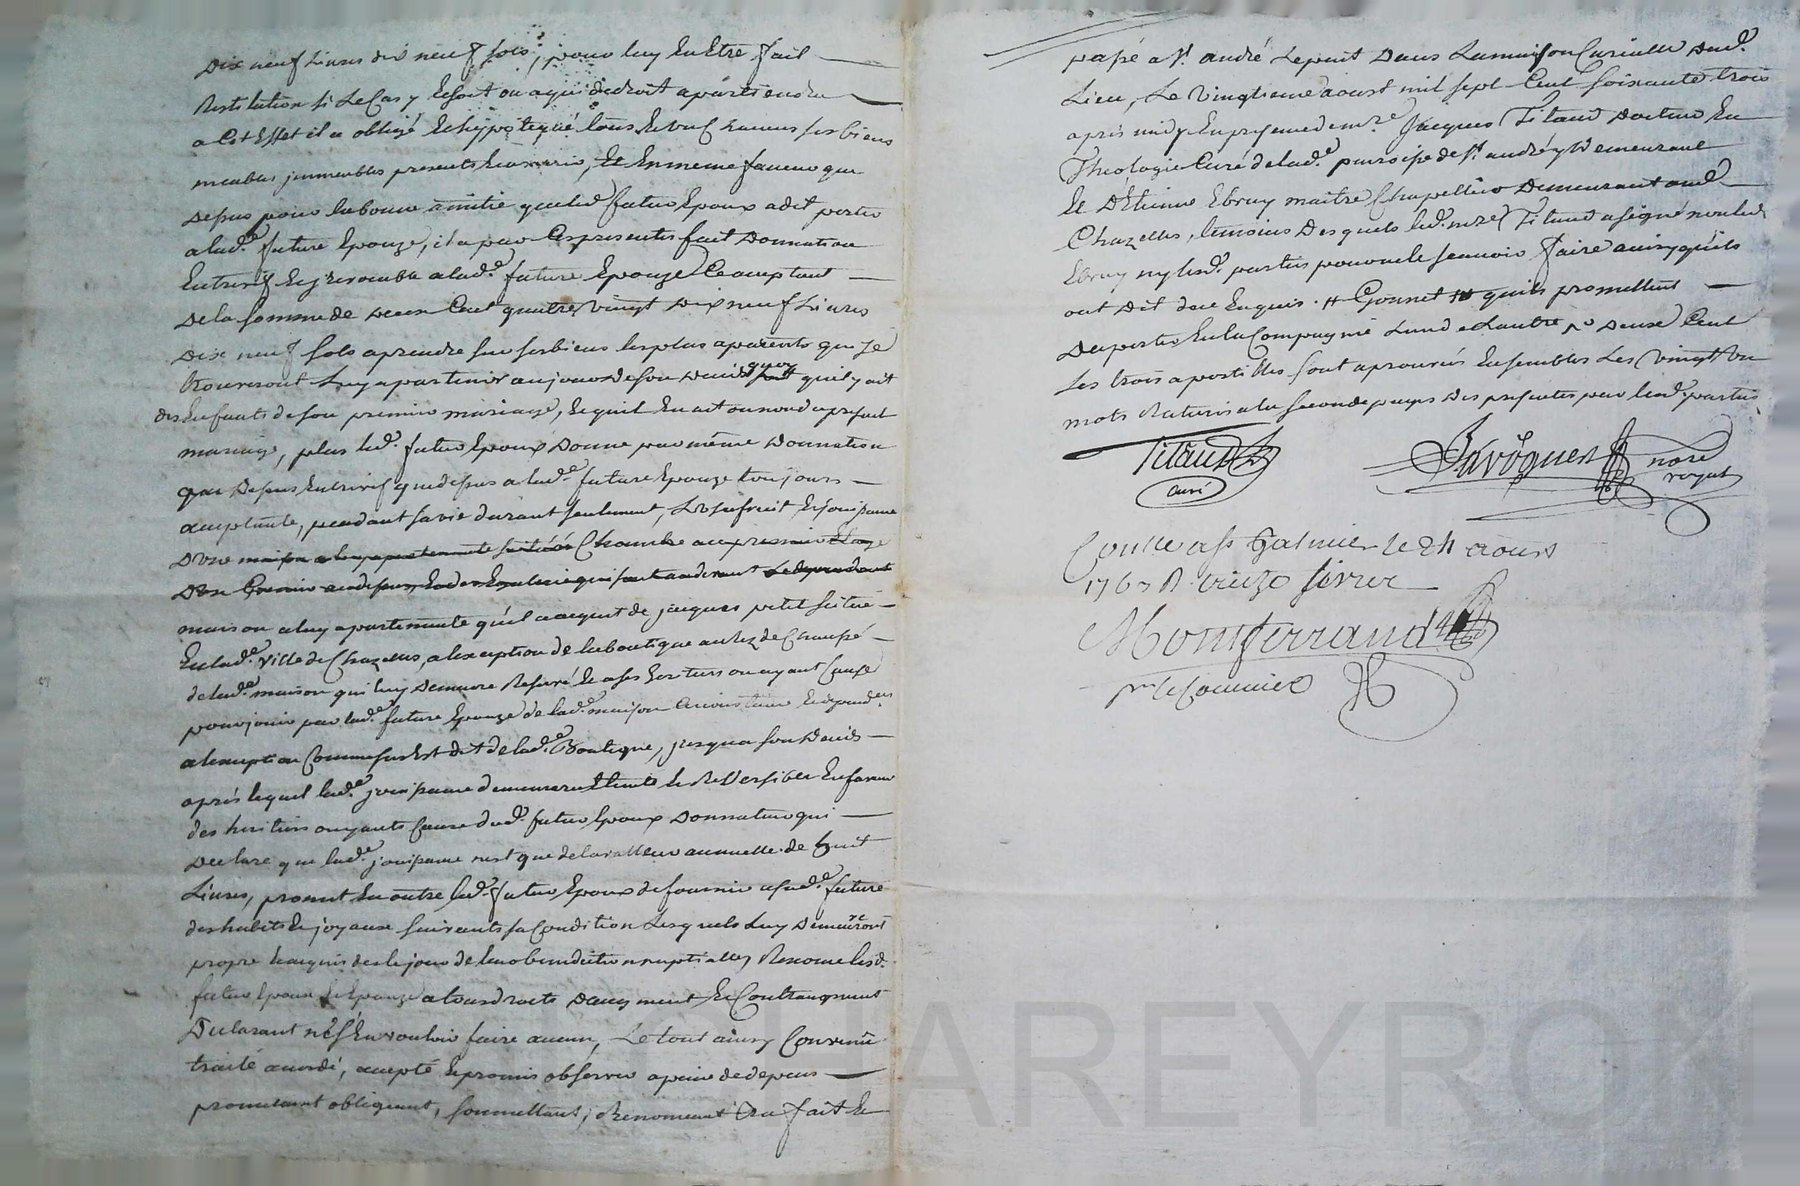 Dix neuf Livres dix neuf sols, pour luy En Etre fait
Restitution si Le Cas y Echoit ou a qui de droit apartiendra
a Cet Effet il a obligé Et hypotequé tous Et chacuns ses biens
meubles jmmeubles presents Et avenir, Et En meme faveur que
Depus pour la bonne amitié que led. futur Epoux a dit porter
a lad.e future Epouze, il a par Ces presentes fait Donnation
Entrevif Et jrrevocable a lad.e future Epouze acceptant
De la somme de Deux Cent quatre vingt Dix neuf Livres
Dix neuf sols a prendre sur ses biens les plus aparents qui se
trouveront Luy apartenir au jour de son Deces quoy qu'il y ait
des Enfants de son premier mariage, Et quil En ait ou non du present
mariage, plus led. futur Epoux Donne par même Donnation
que Depus Entrevif que depus a lad.e future Epouze toujours
acceptante, pendant sa vie durant seulement, L'usufruit Et jouissance
D'une maison a luy apartenante Chambre au premier Etage
D'un Grenier au dessus, Et qui sont au devant
maison a luy apartenante qu'il a acquit de jacques petit située
En lad.e ville de Chazelles, a lexception de la boutique au rez de Chaussé
de lad.e maison qui luy Demeure Reservé Et a ses heritiers ou ayant Cause
pour jouir par lad.e future Epouze de lad.e maison
a lexception Comme sus Est dit de lad.e Boutique, jusqua son Deces
après lequel lad.e jouissance demeurera Eteinte Et Reversible En faveur
des heritiers ou ayants Cause dud. futur Epoux Donnateur qui
Declare que lad.e jouissance n'est que de la valleur annuelle de huit
Livres, promet En outre led. futur Epoux de fournir a sad.e future
des habits Et joyaux suivants sa Condition Lesquels Luy Demeureront
propre Et acquis des le jour de leur benediction nuptialle, Renonce lesd.
futur Epoux Et Epouze a tous droits D'augment Et Contraugment
Declarant n'En vouloir faire aucun, Le tout ainsy Convenu
traité accordé, accepté Et promis observer a peine de depens
promettant obligeant, soumettant, Renonceant &a fait Et
passé a St. andré Lepuit Dans La maison Curialle Dud.
Lieu, Le vingtieme aoust mil sept Cent soixante trois
après midy En presence de m.re Jacques Titaud Docteur En
Theologie Curé de lad.e paroisse de St. andré y Demeurant
Et D'Etienne Ebruy maitre Chapellier Demeurant aud.
Chazelles, temoins Desquels led. m.re Titaud a signé non led.
Ebruy ny lesd. parties pour ne le scavoir faire ainsy qu'ils
ont Dit de ce Enquis. # Gonnet # quils promettent
Deporter En la Compagnie Lun de Lautre p.r Deuse Cent
Les trois apostilles sont aprouvés Ensembles Les vingt un
mots Raturés a la seconde page Des presentes par lesd. parties
Titaud
Curé
Javogues nore
royal
Conllé a St Galmier le 24 aoust
1763 R. treize livres
Montferrand
pr le Commis
CHAREYRON